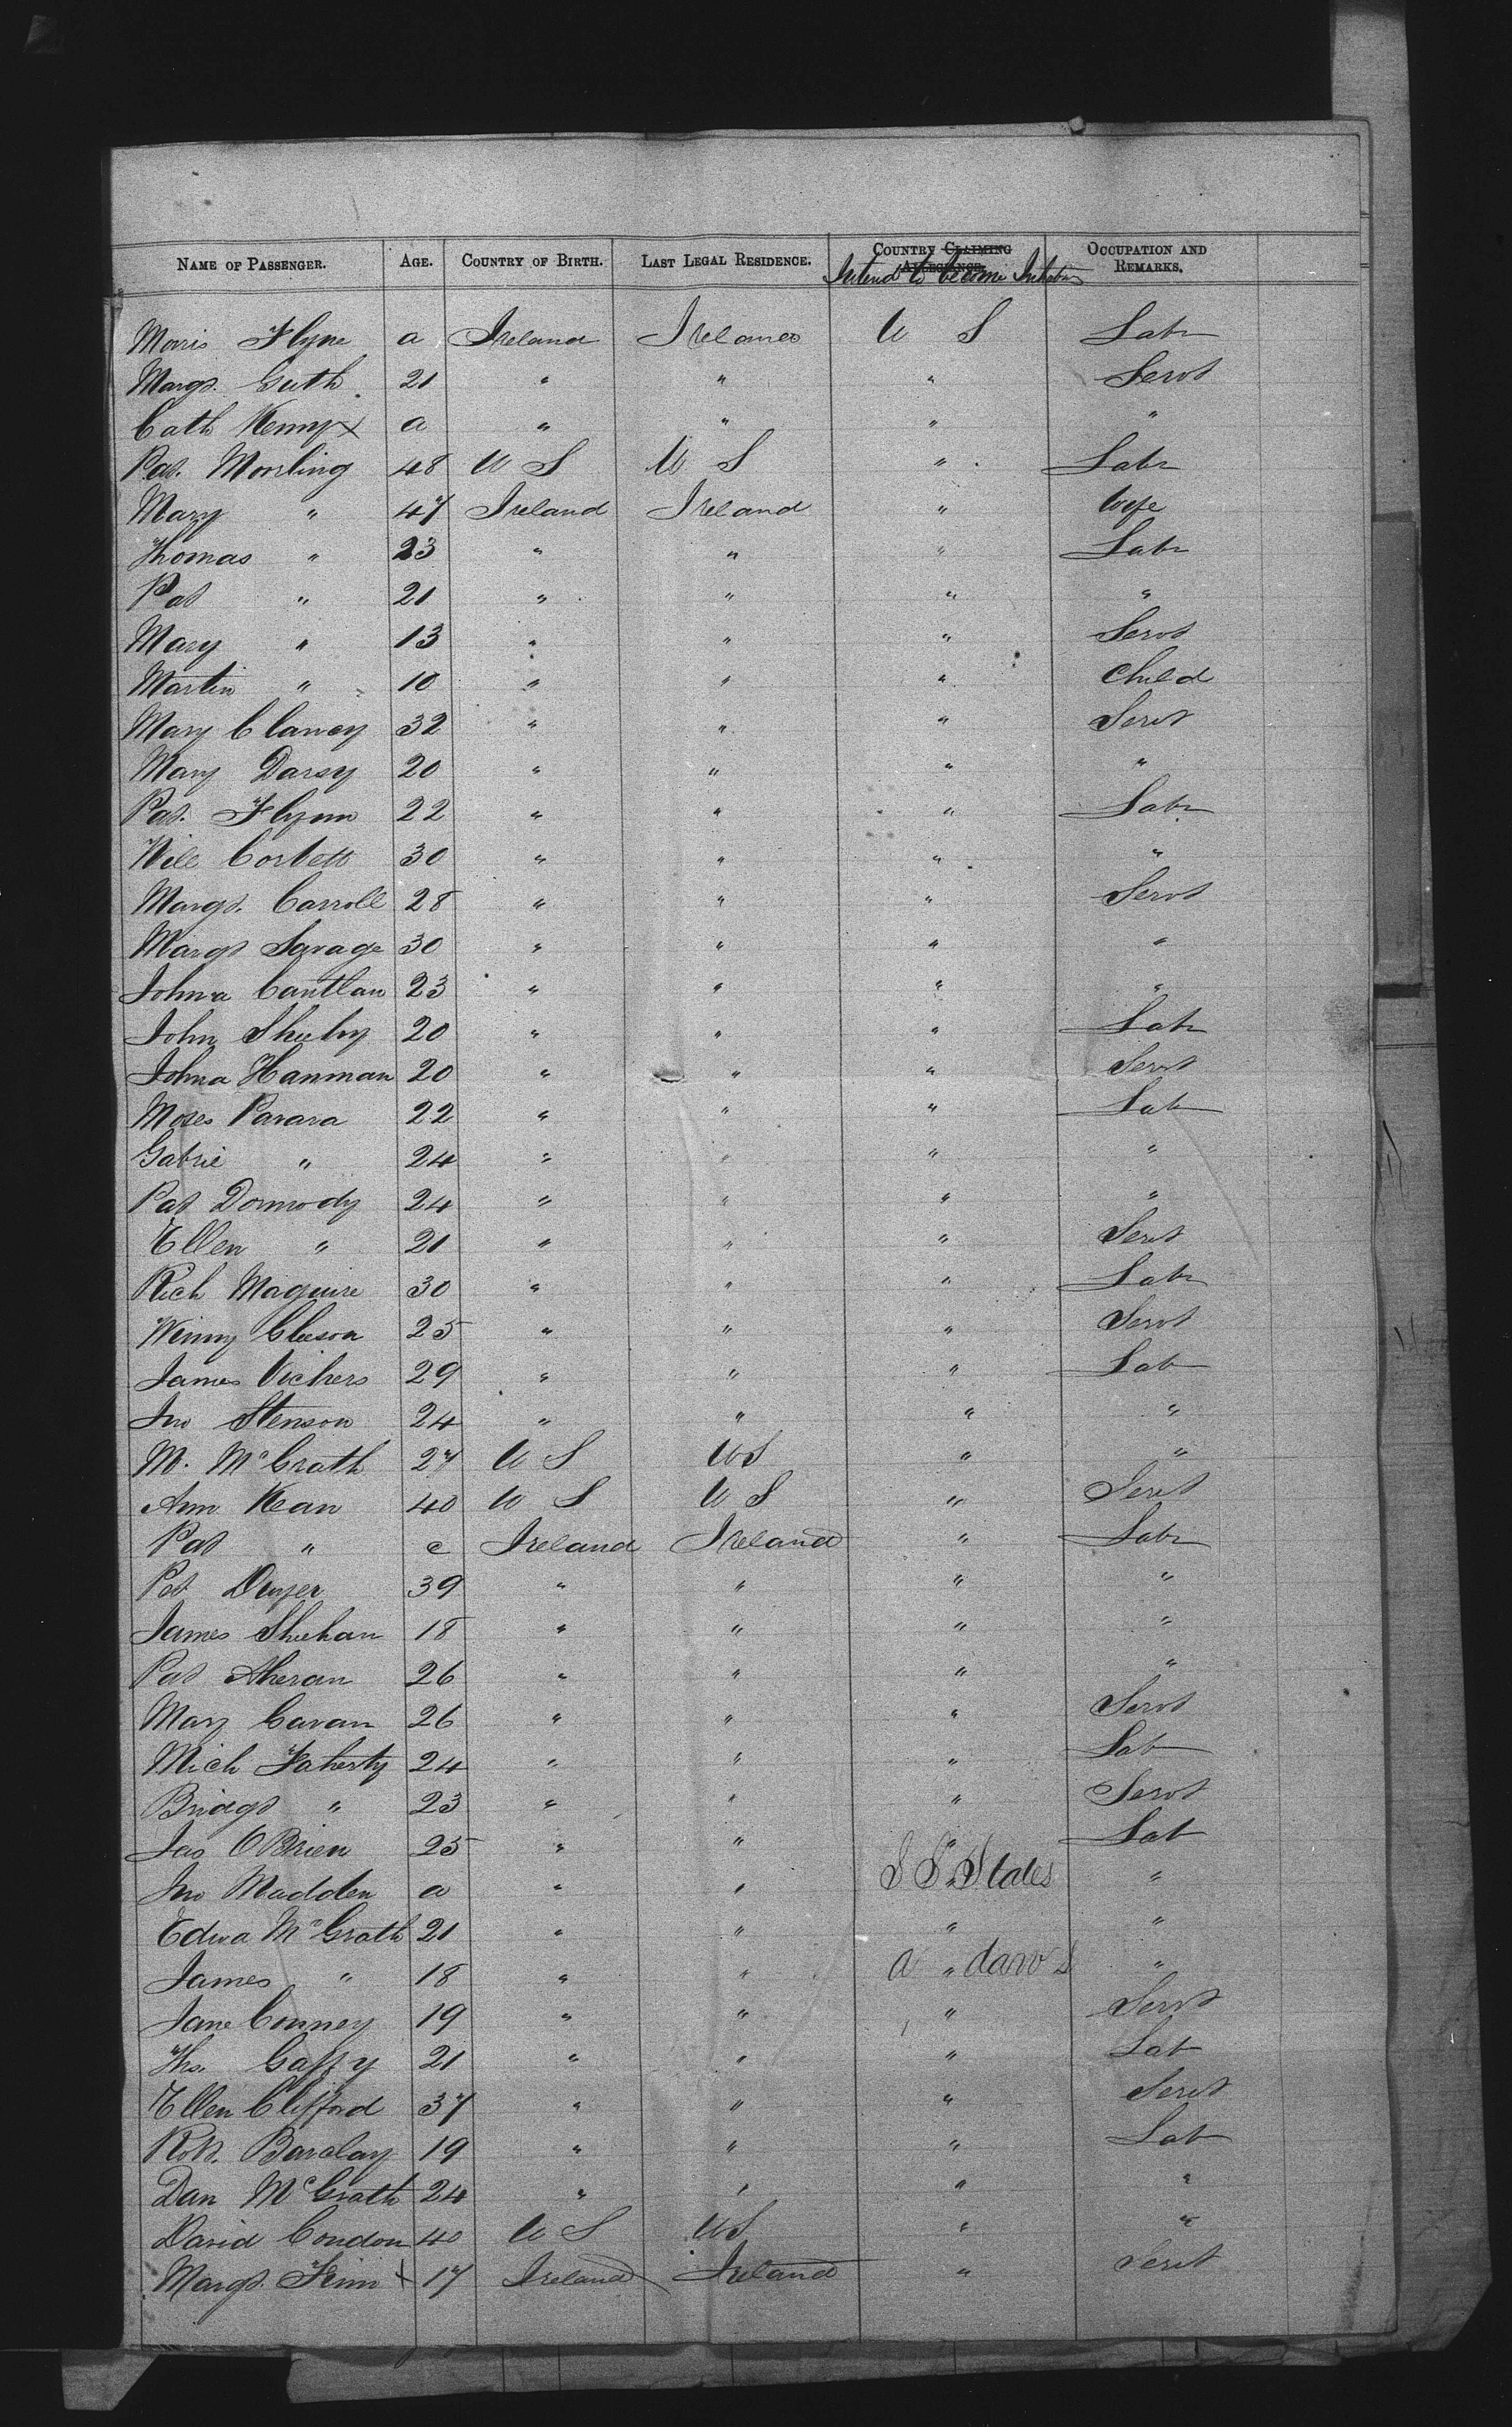 NAME OF PASSENGER. AGE. COUNTRY OF BIRTH. LAST LEGAL RESIDENCE. COUNTRY CLAIMING ALLEGIANCE. OCCUPATION AND REMARKS.
Intend to become
Morris Flyne a Ireland Ireland U S Labr
Margt. Guth 21 " " " Servt
Cath Kenny x a " " " "
Pat. Monrling 48 U S U S " Labr
Mary " 47 Ireland Ireland " Wife
Thomas " 23 " " " Labr
Pat " 21 " " " "
Mary " 13 " " " Servt
Martin " 10 " " " Child
Mary Clancy 32 " " " Servt
Mary Darsy 20 " " " "
Pat. Flynn 22 " " " Labr
Will Corbett 30 " " " "
Margt. Carroll 28 " " " Servt
Margt Savage 30 " " " "
Johna Cantlan 23 " " " "
John Sheehy 20 " " " Labr
Johna Hanman 20 " " " Servt
Moses Parara 22 " " " Lab
Gabrie " 24 " " " "
Pat Dormody 24 " " " "
Ellen " 21 " " " Servt
Rich Maguire 30 " " " Labr
Winny Gleeson 25 " " " Servt
James Vickers 29 " " " Lab
Jno Stenson 24 " " " "
M. McGrath 27 U S U S " "
Ann Kean 40 U S U S " Servt
Pat " c Ireland Ireland " Labr
Pat Dwyer 39 " " " "
James Sheehan 18 " " " "
Pat Aheran 26 " " " "
Mary Cavan 26 " " " Servt
Mich Faherty 24 " " " Lab
Bridgt " 23 " " " Servt
Jas O'Brien 25 " " " Lab
Jno Madden a " " S S States "
Edwd McGrath 21 " " " "
James " 18 " " " "
Jane Conney 19 " " " Servt
Ths. Gaffy 21 " " " Lab
Ellen Clifford 37 " " " Servt
Robt. Barclay 19 " " " Lab
Dan McGrath 24 " " " "
David Condon 40 U S U S " "
Margt. Finn x 17 Ireland Ireland " Servt